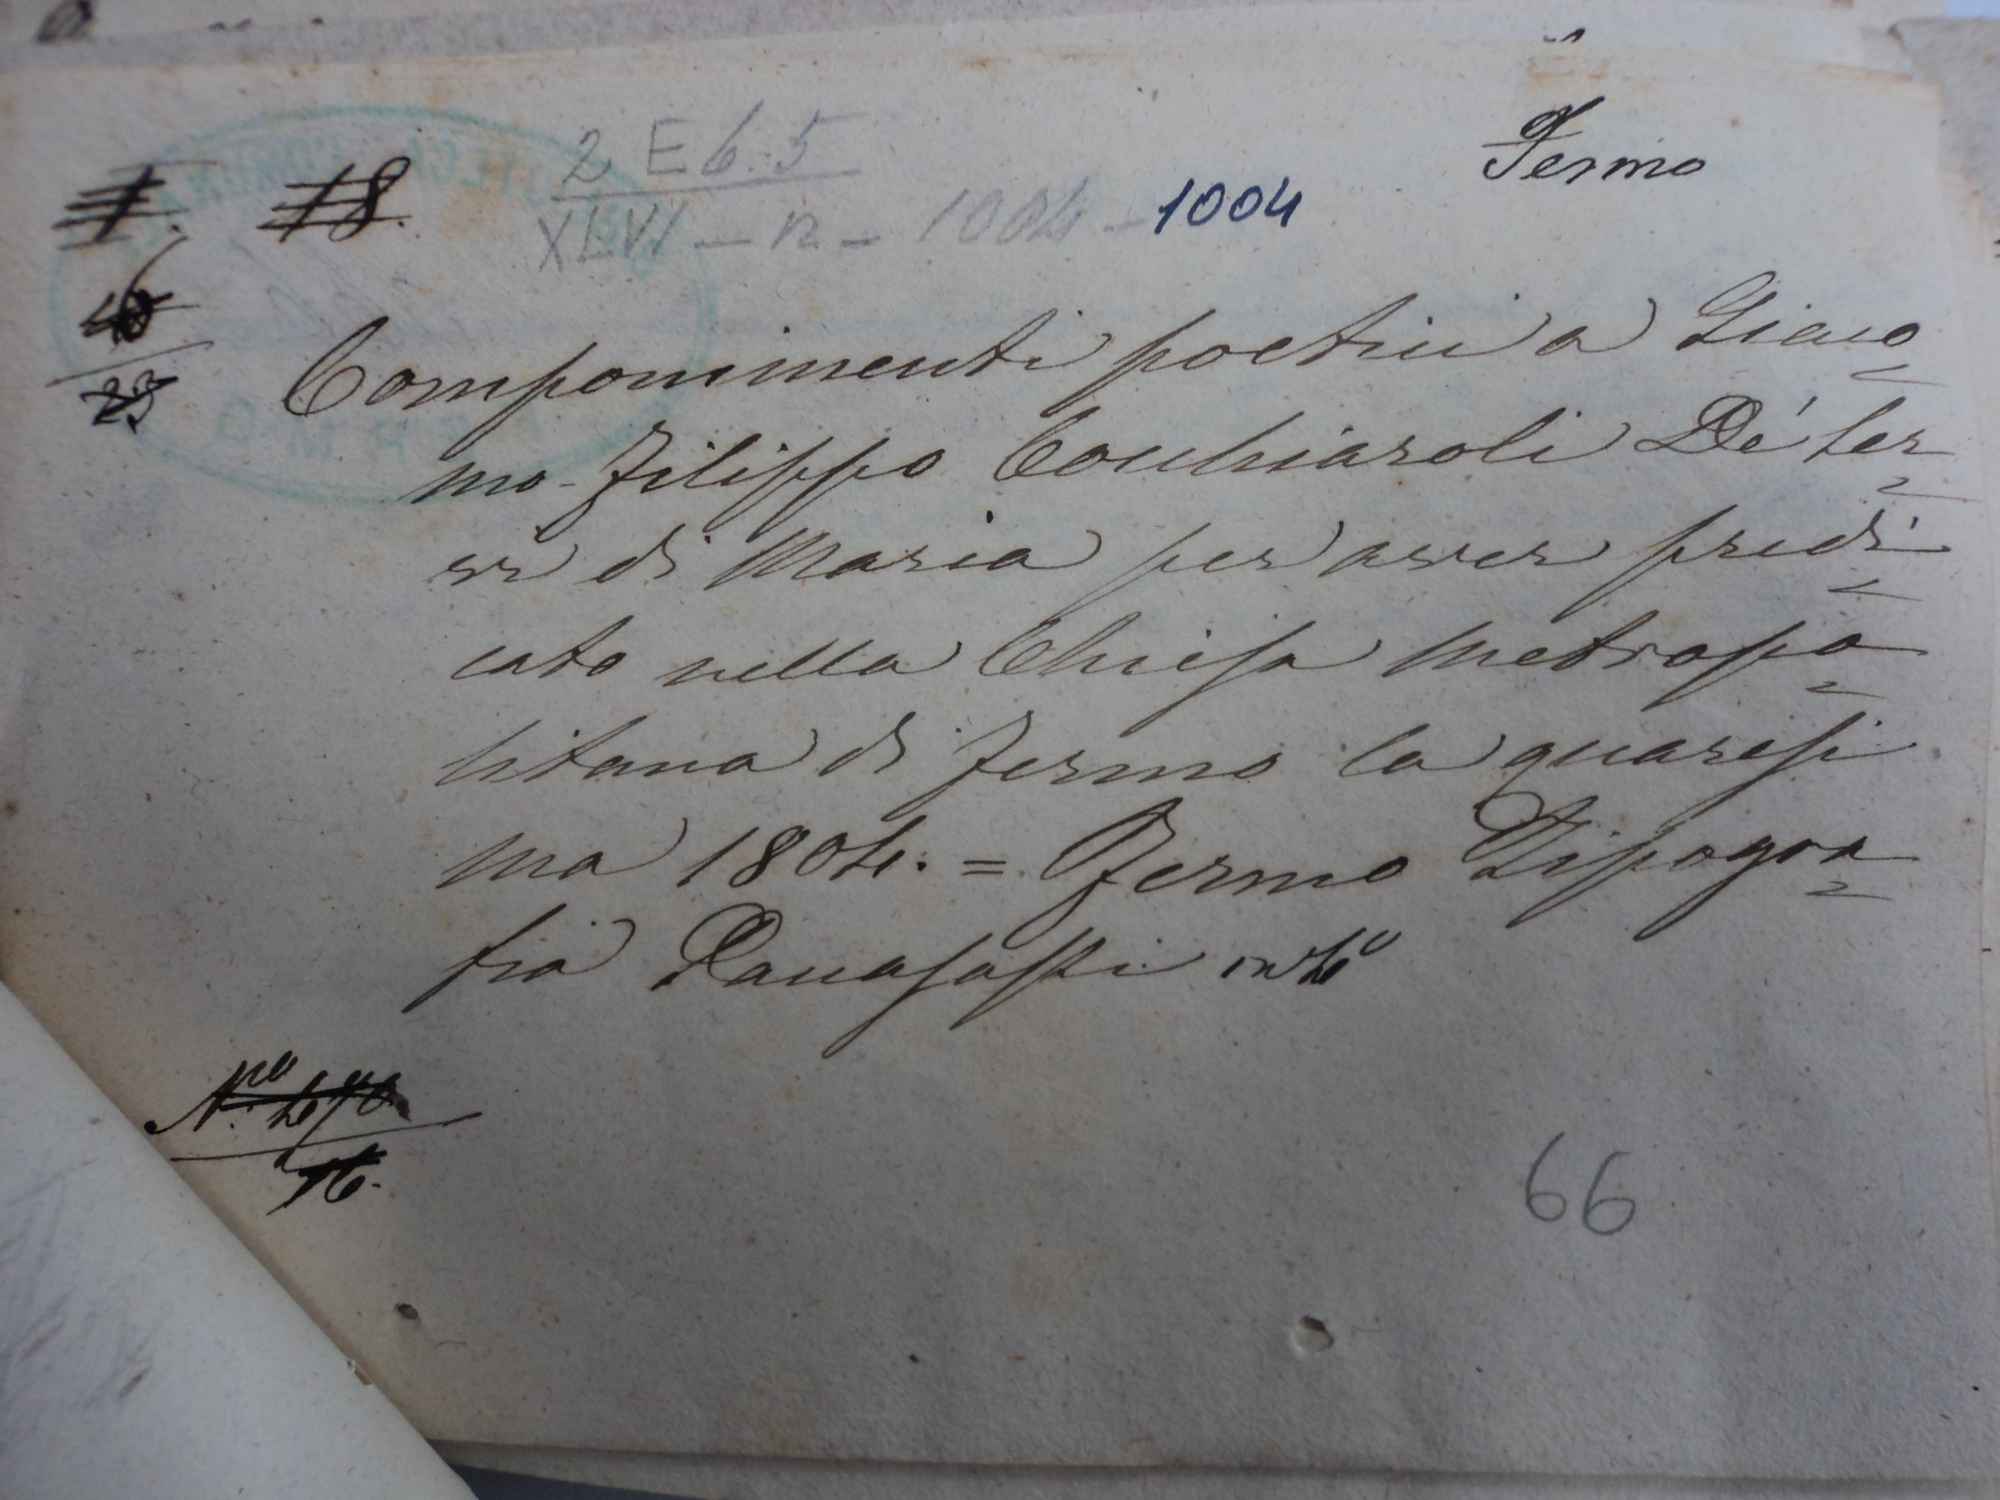 Fermo
2 E 6.5
XLVI - n - 1004 - 1004
1. 18.
23
Componimenti poetici a Giaco=
mo-Filippo Concchiaroli De' Ser=
vi di Maria per aver predi=
cato nella Chiesa Metropo=
litana di Fermo la quaresi
ma 1804. = Fermo Tipogra=
fia Panasassi in 4º
Nro. 490.
16.
66